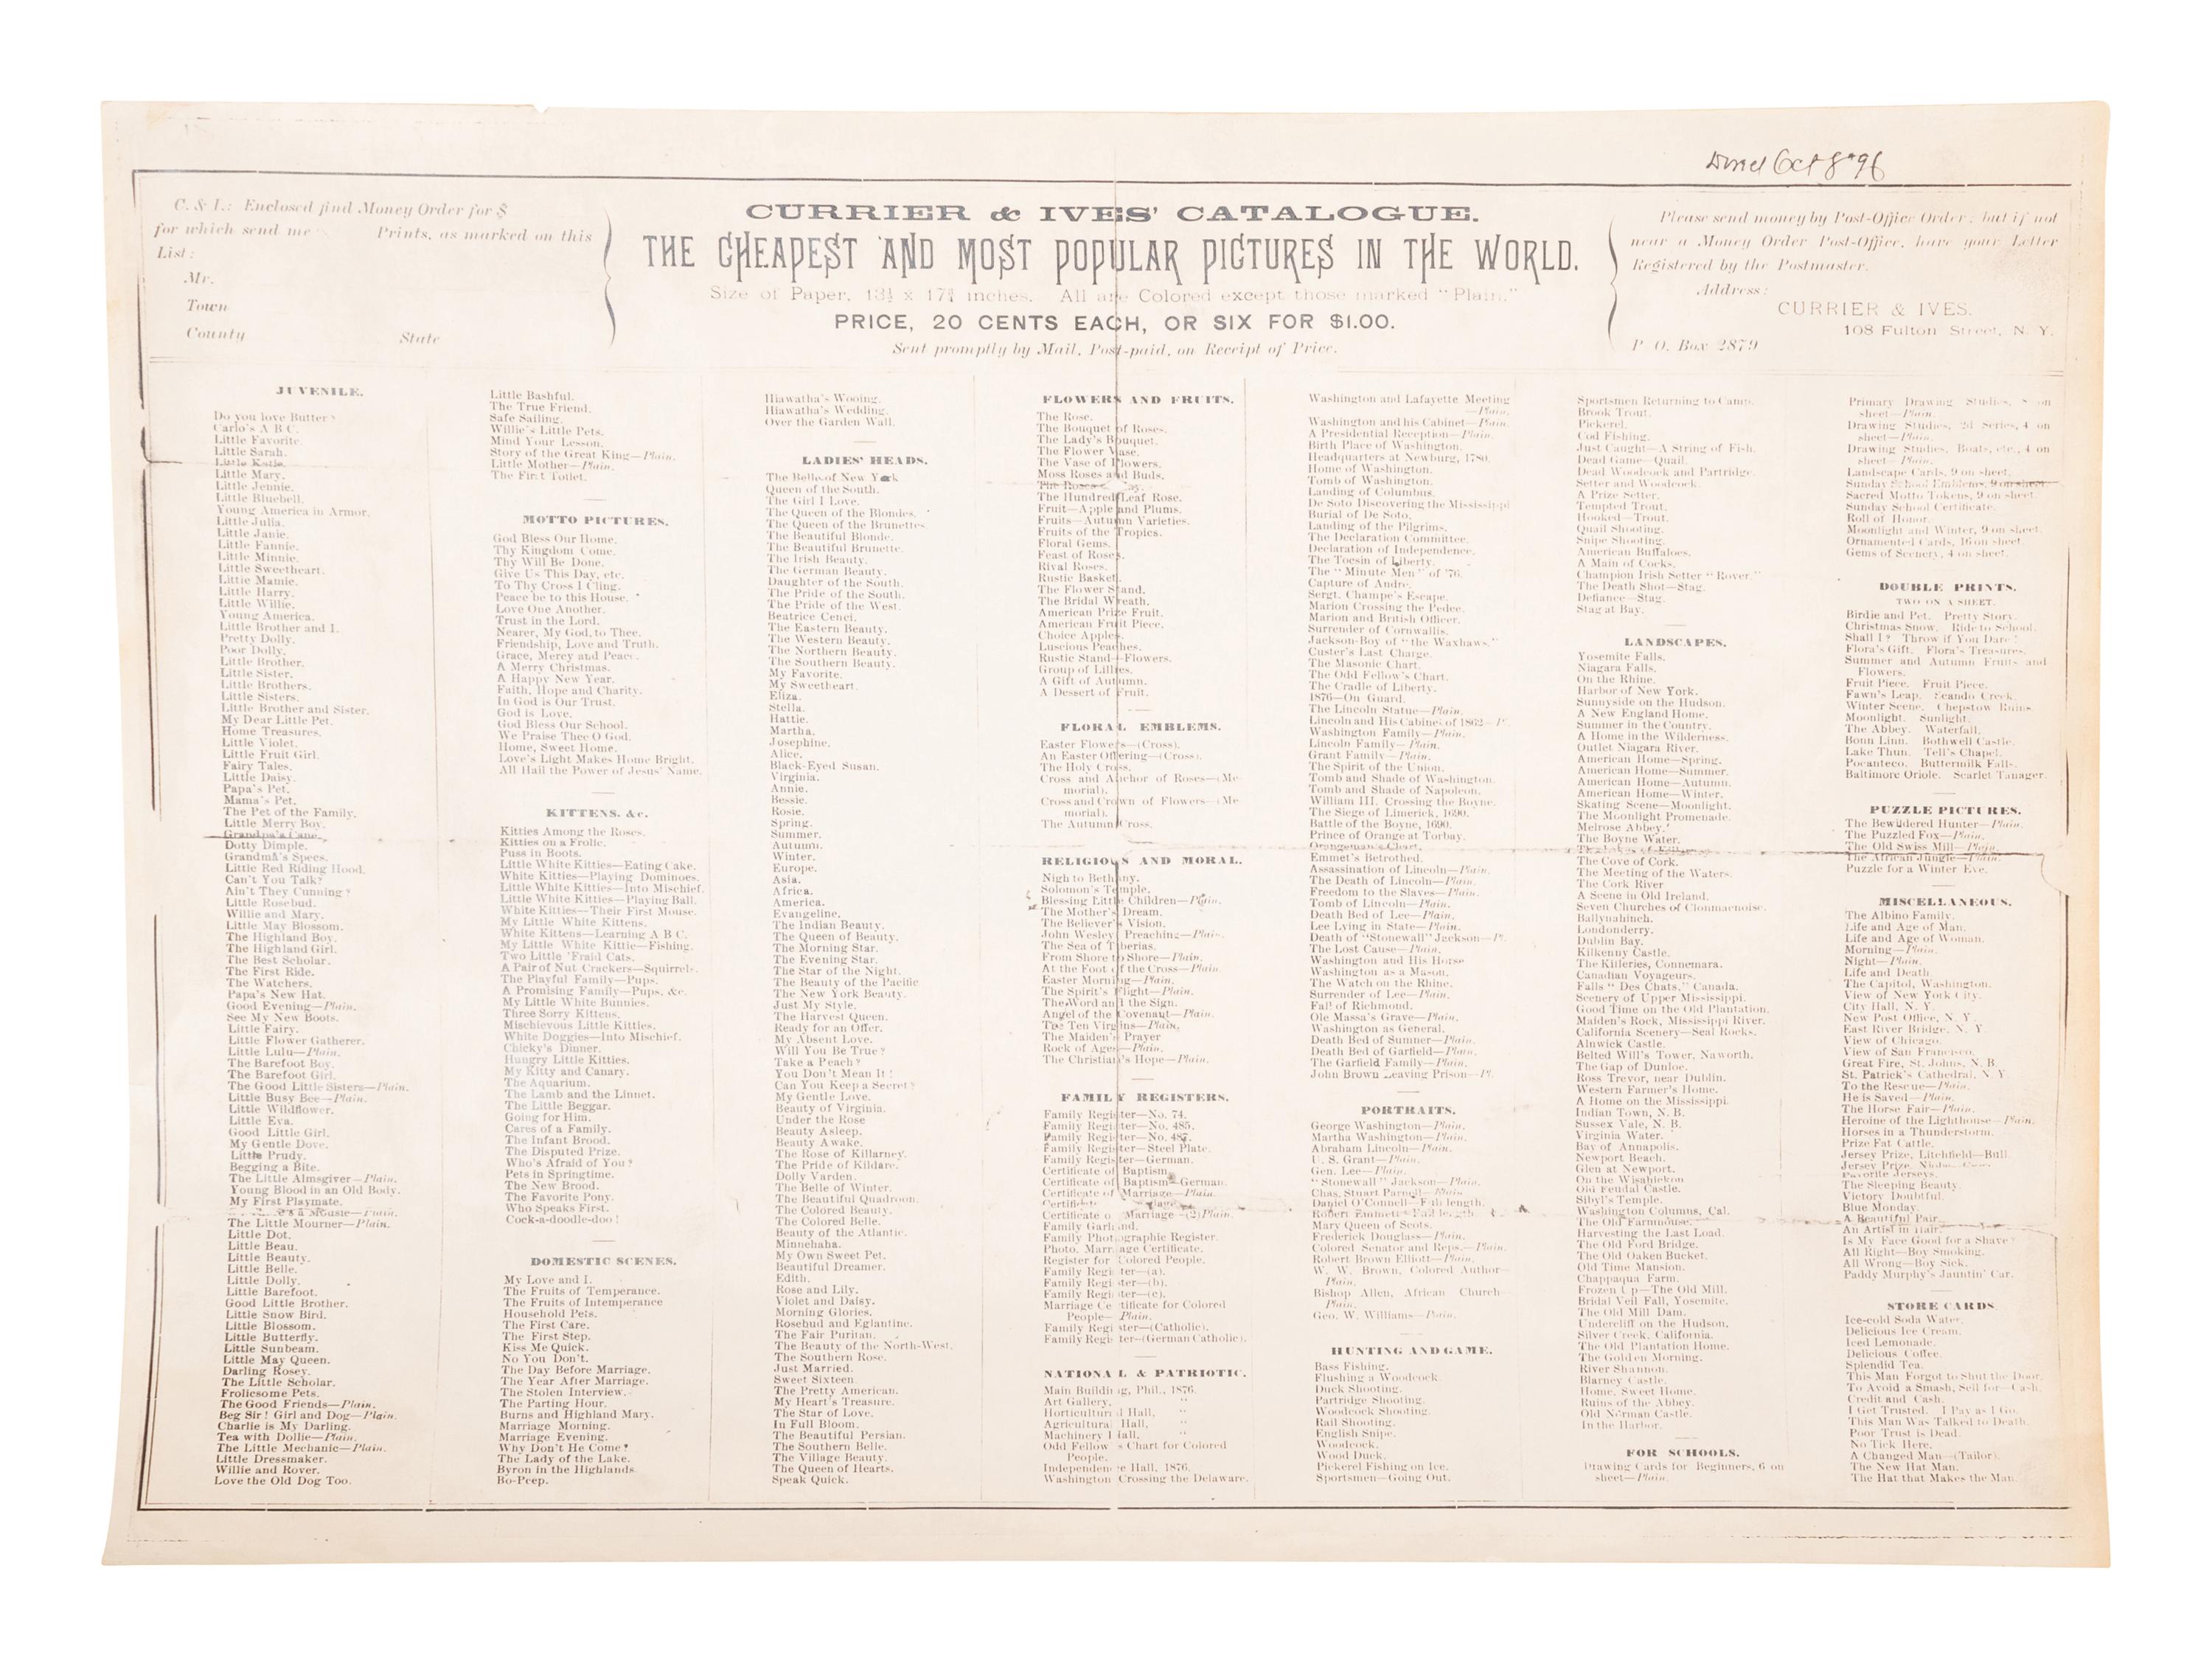 Oct 8 96
C. & I.: Enclosed find Money Order for $
for which send me Prints, as marked on this
List:
Mr.
Town
County State
CURRIER & IVES' CATALOGUE.
THE CHEAPEST AND MOST POPULAR PICTURES IN THE WORLD.
Size of Paper, 13½ x 17¾ inches. All are Colored except those marked "Plain."
PRICE, 20 CENTS EACH, OR SIX FOR $1.00.
Sent promptly by Mail, Post-paid, on Receipt of Price.
Please send money by Post-Office Order; but if not
near a Money Order Post-Office, have your Letter
Registered by the Postmaster.
Address:
CURRIER & IVES.
108 Fulton Street, N. Y.
P. O. Box 2879
JUVENILE.
Do you love Butter?
Carlo's A B C.
Little Favorite.
Little Sarah.
Little Katie.
Little Mary.
Little Jennie.
Little Bluebell.
Young America in Armor.
Little Julia.
Little Janie.
Little Fannie.
Little Minnie.
Little Sweetheart.
Little Mamie.
Little Harry.
Little Willie.
Young America.
Little Brother and I.
Pretty Dolly.
Poor Dolly.
Little Brother.
Little Sister.
Little Brothers.
Little Sisters.
Little Brother and Sister.
My Dear Little Pet.
Home Treasures.
Little Violet.
Little Fruit Girl.
Fairy Tales.
Little Daisy.
Papa's Pet.
Mama's Pet.
The Pet of the Family.
Little Merry Boy.
Grandpa's Cane.
Dotty Dimple.
Grandma's Specs.
Little Red Riding Hood.
Can't You Talk?
Ain't They Cunning?
Little Rosebud.
Willie and Mary.
Little May Blossom.
The Highland Boy.
The Highland Girl.
The Best Scholar.
The First Ride.
The Watchers.
Papa's New Hat.
Good Evening—Plain.
See My New Boots.
Little Fairy.
Little Flower Gatherer.
Little Lulu—Plain.
The Barefoot Boy.
The Barefoot Girl.
The Good Little Sisters—Plain.
Little Busy Bee—Plain.
Little Wildflower.
Little Eva.
Good Little Girl.
My Gentle Dove.
Little Prudy.
Begging a Bite.
The Little Almsgiver—Plain.
Young Blood in an Old Body.
My First Playmate.
a Mousie—Plain.
The Little Mourner—Plain.
Little Dot.
Little Beau.
Little Beauty.
Little Belle.
Little Dolly.
Little Barefoot.
Good Little Brother.
Little Snow Bird.
Little Blossom.
Little Butterfly.
Little Sunbeam.
Little May Queen.
Darling Rosey.
The Little Scholar.
Frolicsome Pets.
The Good Friends—Plain.
Beg Sir! Girl and Dog—Plain.
Charlie is My Darling.
Tea with Dollie—Plain.
The Little Mechanic—Plain.
Little Dressmaker.
Willie and Rover.
Love the Old Dog Too.
Little Bashful.
The True Friend.
Safe Sailing.
Willie's Little Pets.
Mind Your Lesson.
Story of the Great King—Plain.
Little Mother—Plain.
The First Toilet.
MOTTO PICTURES.
God Bless Our Home.
Thy Kingdom Come.
Thy Will Be Done.
Give Us This Day, etc.
To Thy Cross I Cling.
Peace be to this House.
Love One Another.
Trust in the Lord.
Nearer, My God, to Thee.
Friendship, Love and Truth.
Grace, Mercy and Peace.
A Merry Christmas.
A Happy New Year.
Faith, Hope and Charity.
In God is Our Trust.
God is Love.
God Bless Our School.
We Praise Thee O God.
Home, Sweet Home.
Love's Light Makes Home Bright.
All Hail the Power of Jesus' Name.
KITTENS, &c.
Kitties Among the Roses.
Kitties on a Frolic.
Puss in Boots.
Little White Kitties—Eating Cake.
White Kitties—Playing Dominoes.
Little White Kitties—Into Mischief.
Little White Kitties—Playing Ball.
White Kitties—Their First Mouse.
My Little White Kittens.
White Kittens—Learning A B C.
My Little White Kittie—Fishing.
Two Little 'Fraid Cats.
A Pair of Nut Crackers—Squirrels.
The Playful Family—Pups.
A Promising Family—Pups, &c.
My Little White Bunnies.
Three Sorry Kittens.
Mischievous Little Kitties.
White Doggies—Into Mischief.
Chicky's Dinner.
Hungry Little Kitties.
My Kitty and Canary.
The Aquarium.
The Lamb and the Linnet.
The Little Beggar.
Going for Him.
Cares of a Family.
The Infant Brood.
The Disputed Prize.
Who's Afraid of You?
Pets in Springtime.
The New Brood.
The Favorite Pony.
Who Speaks First.
Cock-a-doodle-doo!
DOMESTIC SCENES.
My Love and I.
The Fruits of Temperance.
The Fruits of Intemperance
Household Pets.
The First Care.
The First Step.
Kiss Me Quick.
No You Don't.
The Day Before Marriage.
The Year After Marriage.
The Stolen Interview.
The Parting Hour.
Burns and Highland Mary.
Marriage Morning.
Marriage Evening.
Why Don't He Come?
The Lady of the Lake.
Byron in the Highlands.
Bo-Peep.
Hiawatha's Wooing.
Hiawatha's Wedding.
Over the Garden Wall.
LADIES' HEADS.
The Belle of New York
Queen of the South.
The Girl I Love.
The Queen of the Blondes.
The Queen of the Brunettes.
The Beautiful Blonde.
The Beautiful Brunette.
The Irish Beauty.
The German Beauty.
Daughter of the South.
The Pride of the South.
The Pride of the West.
Beatrice Cenci.
The Eastern Beauty.
The Western Beauty.
The Northern Beauty.
The Southern Beauty.
My Favorite.
My Sweetheart.
Eliza.
Stella.
Hattie.
Martha.
Josephine.
Alice.
Black-Eyed Susan.
Virginia.
Annie.
Bessie.
Rosie.
Spring.
Summer.
Autumn.
Winter.
Europe.
Asia.
Africa.
America.
Evangeline.
The Indian Beauty.
The Queen of Beauty.
The Morning Star.
The Evening Star.
The Star of the Night.
The Beauty of the Pacific
The New York Beauty.
Just My Style.
The Harvest Queen.
Ready for an Offer.
My Absent Love.
Will You Be True?
Take a Peach?
You Don't Mean It!
Can You Keep a Secret?
My Gentle Love.
Beauty of Virginia.
Under the Rose
Beauty Asleep.
Beauty Awake.
The Rose of Killarney.
The Pride of Kildare.
Dolly Varden.
The Belle of Winter.
The Beautiful Quadroon.
The Colored Beauty.
The Colored Belle.
Beauty of the Atlantic.
Minnehaha.
My Own Sweet Pet.
Beautiful Dreamer.
Edith.
Rose and Lily.
Violet and Daisy.
Morning Glories.
Rosebud and Eglantine.
The Fair Puritan.
The Beauty of the North-West.
The Southern Rose.
Just Married.
Sweet Sixteen.
The Pretty American.
My Heart's Treasure.
The Star of Love.
In Full Bloom.
The Beautiful Persian.
The Southern Belle.
The Village Beauty.
The Queen of Hearts.
Speak Quick.
FLOWERS AND FRUITS.
The Rose.
The Bouquet of Roses.
The Lady's Bouquet.
The Flower Vase.
The Vase of Flowers.
Moss Roses and Buds.
The Roses
The Hundred Leaf Rose.
Fruit—Apple and Plums.
Fruits—Autumn Varieties.
Fruits of the Tropics.
Floral Gems.
Feast of Roses.
Rival Roses.
Rustic Basket.
The Flower Stand.
The Bridal Wreath.
American Prize Fruit.
American Fruit Piece.
Choice Apples.
Luscious Peaches.
Rustic Stand—Flowers.
Group of Lillies.
A Gift of Autumn.
A Dessert of Fruit.
FLORAL EMBLEMS.
Easter Flowers—(Cross).
An Easter Offering—(Cross).
The Holy Cross.
Cross and Anchor of Roses—(Me-
morial).
Cross and Crown of Flowers—(Me-
morial).
The Autumn Cross.
RELIGIOUS AND MORAL.
Nigh to Bethany.
Solomon's Temple.
Blessing Little Children—Plain.
The Mother's Dream.
The Believer's Vision.
John Wesley Preaching—Plain.
The Sea of Tiberias.
From Shore to Shore—Plain.
At the Foot of the Cross—Plain.
Easter Morning—Plain.
The Spirit's Flight—Plain.
The Word and the Sign.
Angel of the Covenant—Plain.
The Ten Virgins—Plain.
The Maiden's Prayer
Rock of Ages—Plain.
The Christian's Hope—Plain.
FAMILY REGISTERS.
Family Register—No. 74.
Family Register—No. 485.
Family Register—No. 487.
Family Register—Steel Plate.
Family Register—German.
Certificate of Baptism.
Certificate of Baptism—German.
Certificate of Marriage—Plain.
Certificate
Certificate o Marriage—(2) Plain.
Family Garland.
Family Photographic Register.
Photo. Marriage Certificate.
Register for Colored People.
Family Register—(a).
Family Register—(b).
Family Register—(c).
Marriage Certificate for Colored
People—Plain.
Family Register—(Catholic).
Family Register—(German Catholic).
NATIONAL & PATRIOTIC.
Main Building, Phil., 1876.
Art Gallery, "
Horticultural Hall, "
Agricultural Hall, "
Machinery Hall, "
Odd Fellow's Chart for Colored
People.
Independence Hall, 1876.
Washington Crossing the Delaware.
Washington and Lafayette Meeting
—Plain.
Washington and his Cabinet—Plain.
A Presidential Reception—Plain.
Birth Place of Washington.
Headquarters at Newburg, 1780.
Home of Washington.
Tomb of Washington.
Landing of Columbus.
De Soto Discovering the Mississippi
Burial of De Soto.
Landing of the Pilgrims.
The Declaration Committee.
Declaration of Independence.
The Tocsin of Liberty.
The "Minute Men" of '76.
Capture of Andre.
Sergt. Champe's Escape.
Marion Crossing the Pedee.
Marion and British Officer.
Surrender of Cornwallis.
Jackson-Boy of "the Waxhaws."
Custer's Last Charge.
The Masonic Chart.
The Odd Fellow's Chart.
The Cradle of Liberty.
1876—On Guard.
The Lincoln Statue—Plain.
Lincoln and His Cabinet of 1862—P.
Washington Family—Plain.
Lincoln Family—Plain.
Grant Family—Plain.
The Spirit of the Union.
Tomb and Shade of Washington.
Tomb and Shade of Napoleon.
William III. Crossing the Boyne.
The Siege of Limerick, 1690.
Battle of the Boyne, 1690.
Prince of Orange at Torbay.
Orangeman's Chart.
Emmet's Betrothed.
Assassination of Lincoln—Plain.
The Death of Lincoln—Plain.
Freedom to the Slaves—Plain.
Tomb of Lincoln—Plain.
Death Bed of Lee—Plain.
Lee Lying in State—Plain.
Death of "Stonewall" Jackson—P.
The Lost Cause—Plain.
Washington and His Horse
Washington as a Mason.
The Watch on the Rhine.
Surrender of Lee—Plain.
Fall of Richmond.
Ole Massa's Grave—Plain.
Washington as General.
Death Bed of Sumner—Plain.
Death Bed of Garfield—Plain.
The Garfield Family—Plain.
John Brown Leaving Prison—Pl.
PORTRAITS.
George Washington—Plain.
Martha Washington—Plain.
Abraham Lincoln—Plain.
U. S. Grant—Plain.
Gen. Lee—Plain.
"Stonewall" Jackson—Plain.
Chas. Stuart Parnell—Plain
Daniel O'Connell—Full length.
Robert Emmet—Full length.
Mary Queen of Scots.
Frederick Douglass—Plain.
Colored Senator and Reps.—Plain.
Robert Brown Elliott—Plain.
W. W. Brown, Colored Author—
Plain.
Bishop Allen, African Church—
Plain.
Geo. W. Williams—Plain.
HUNTING AND GAME.
Bass Fishing.
Flushing a Woodcock
Duck Shooting.
Partridge Shooting.
Woodcock Shooting.
Rail Shooting.
English Snipe.
Woodcock.
Wood Duck.
Pickerel Fishing on Ice.
Sportsmen—Going Out.
Sportsmen Returning to Camp.
Brook Trout.
Pickerel.
Cod Fishing.
Just Caught—A String of Fish.
Dead Game—Quail.
Dead Woodcock and Partridge.
Setter and Woodcock.
A Prize Setter.
Tempted Trout.
Hooked—Trout.
Quail Shooting.
Snipe Shooting.
American Buffaloes.
A Main of Cocks.
Champion Irish Setter "Rover."
The Death Shot—Stag.
Defiance—Stag.
Stag at Bay.
LANDSCAPES.
Yosemite Falls.
Niagara Falls.
On the Rhine.
Harbor of New York.
Sunnyside on the Hudson.
A New England Home.
Summer in the Country.
A Home in the Wilderness.
Outlet Niagara River.
American Home—Spring.
American Home—Summer.
American Home—Autumn.
American Home—Winter.
Skating Scene—Moonlight.
The Moonlight Promenade.
Melrose Abbey.
The Boyne Water.
The Cove of Cork.
The Meeting of the Waters.
The Cork River
A Scene in Old Ireland.
Seven Churches of Clonmacnoise.
Ballynahinch.
Londonderry.
Dublin Bay.
Kilkenny Castle.
The Killeries, Connemara.
Canadian Voyageurs.
Falls "Des Chats," Canada.
Scenery of Upper Mississippi.
Good Time on the Old Plantation.
Maiden's Rock, Mississippi River.
California Scenery—Seal Rocks.
Alnwick Castle.
Belted Will's Tower, Naworth.
The Gap of Dunloe.
Ross Trevor, near Dublin.
Western Farmer's Home.
A Home on the Mississippi.
Indian Town, N. B.
Sussex Vale, N. B.
Virginia Water.
Bay of Annapolis.
Newport Beach.
Glen at Newport.
On the Wisahickon
Old Feudal Castle.
Sibyl's Temple.
Washington Columns, Cal.
The Old Farmhouse.
Harvesting the Last Load.
The Old Ford Bridge.
The Old Oaken Bucket.
Old Time Mansion.
Chappaqua Farm.
Frozen Up—The Old Mill.
Bridal Veil Fall, Yosemite.
The Old Mill Dam.
Undercliff on the Hudson.
Silver Creek, California.
The Old Plantation Home.
The Golden Morning.
River Shannon.
Blarney Castle.
Home, Sweet Home.
Ruins of the Abbey.
Old Norman Castle.
In the Harbor.
FOR SCHOOLS.
Drawing Cards for Beginners, 6 on
sheet—Plain.
Primary Drawing Studies, 8 on
sheet—Plain.
Drawing Studies, 2d Series, 4 on
sheet—Plain.
Drawing Studies, Boats, etc., 4 on
sheet—Plain.
Landscape Cards, 9 on sheet.
Sunday School Emblems, 9 on sheet.
Sacred Motto Tokens, 9 on sheet.
Sunday School Certificate.
Roll of Honor.
Moonlight and Winter, 9 on sheet.
Ornamented Cards, 16 on sheet.
Gems of Scenery, 4 on sheet.
DOUBLE PRINTS.
TWO ON A SHEET.
Birdie and Pet. Pretty Story.
Christmas Snow. Ride to School.
Shall I? Throw if You Dare!
Flora's Gift. Flora's Treasures.
Summer and Autumn Fruits and
Flowers.
Fruit Piece. Fruit Piece.
Fawn's Leap. Scando Creek.
Winter Scene. Chepstow Ruins.
Moonlight. Sunlight.
The Abbey. Waterfall.
Bonn Linn. Bothwell Castle.
Lake Thun. Tell's Chapel.
Pocanteco. Buttermilk Falls.
Baltimore Oriole. Scarlet Tanager.
PUZZLE PICTURES.
The Bewildered Hunter—Plain.
The Puzzled Fox—Plain.
The Old Swiss Mill—Plain.
The African Jungle—Plain.
Puzzle for a Winter Eve.
MISCELLANEOUS.
The Albino Family.
Life and Age of Man.
Life and Age of Woman.
Morning—Plain.
Night—Plain.
Life and Death.
The Capitol, Washington.
View of New York City.
City Hall, N. Y.
New Post Office, N. Y.
East River Bridge, N. Y.
View of Chicago.
View of San Francisco.
Great Fire, St. Johns, N. B.
St. Patrick's Cathedral, N. Y.
To the Rescue—Plain.
He is Saved—Plain.
The Horse Fair—Plain.
Heroine of the Lighthouse—Plain.
Horses in a Thunderstorm.
Prize Fat Cattle.
Jersey Prize, Litchfield—Bull.
Jersey Prize,
Favorite Jerseys.
The Sleeping Beauty.
Victory Doubtful.
Blue Monday.
A Beautiful Pair.
An Artist in Hair.
Is My Face Good for a Shave?
All Right—Boy Smoking.
All Wrong—Boy Sick.
Paddy Murphy's Jauntin' Car.
STORE CARDS
Ice-cold Soda Water.
Delicious Ice Cream.
Iced Lemonade.
Delicious Coffee.
Splendid Tea.
This Man Forgot to Shut the Door.
To Avoid a Smash, Sell for—Cash.
Credit and Cash.
I Get Trusted. I Pay as I Go.
This Man Was Talked to Death.
Poor Trust is Dead.
No Tick Here.
A Changed Man—(Tailor).
The New Hat Man.
The Hat that Makes the Man.